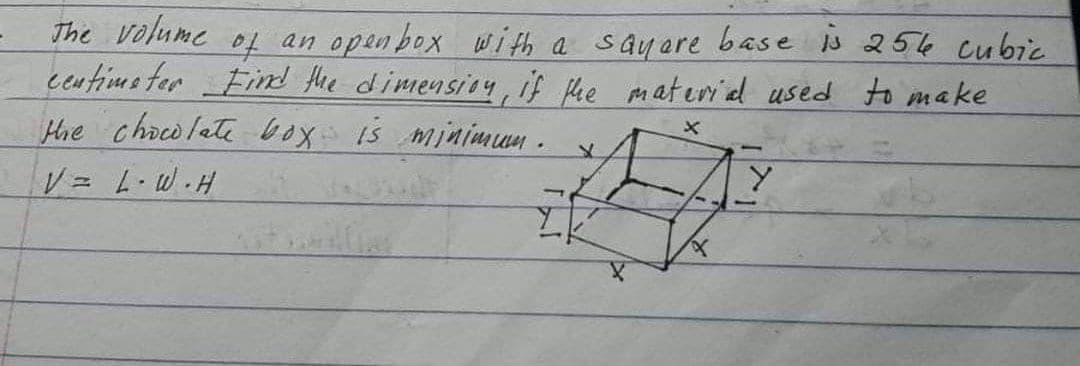 The volume of an open box with a square base is 256 cubic
centimeter Find the dimension, if the material used to make
the chocolate box is minimum.
V = L·W·H
X
X
Y
Y
X
X